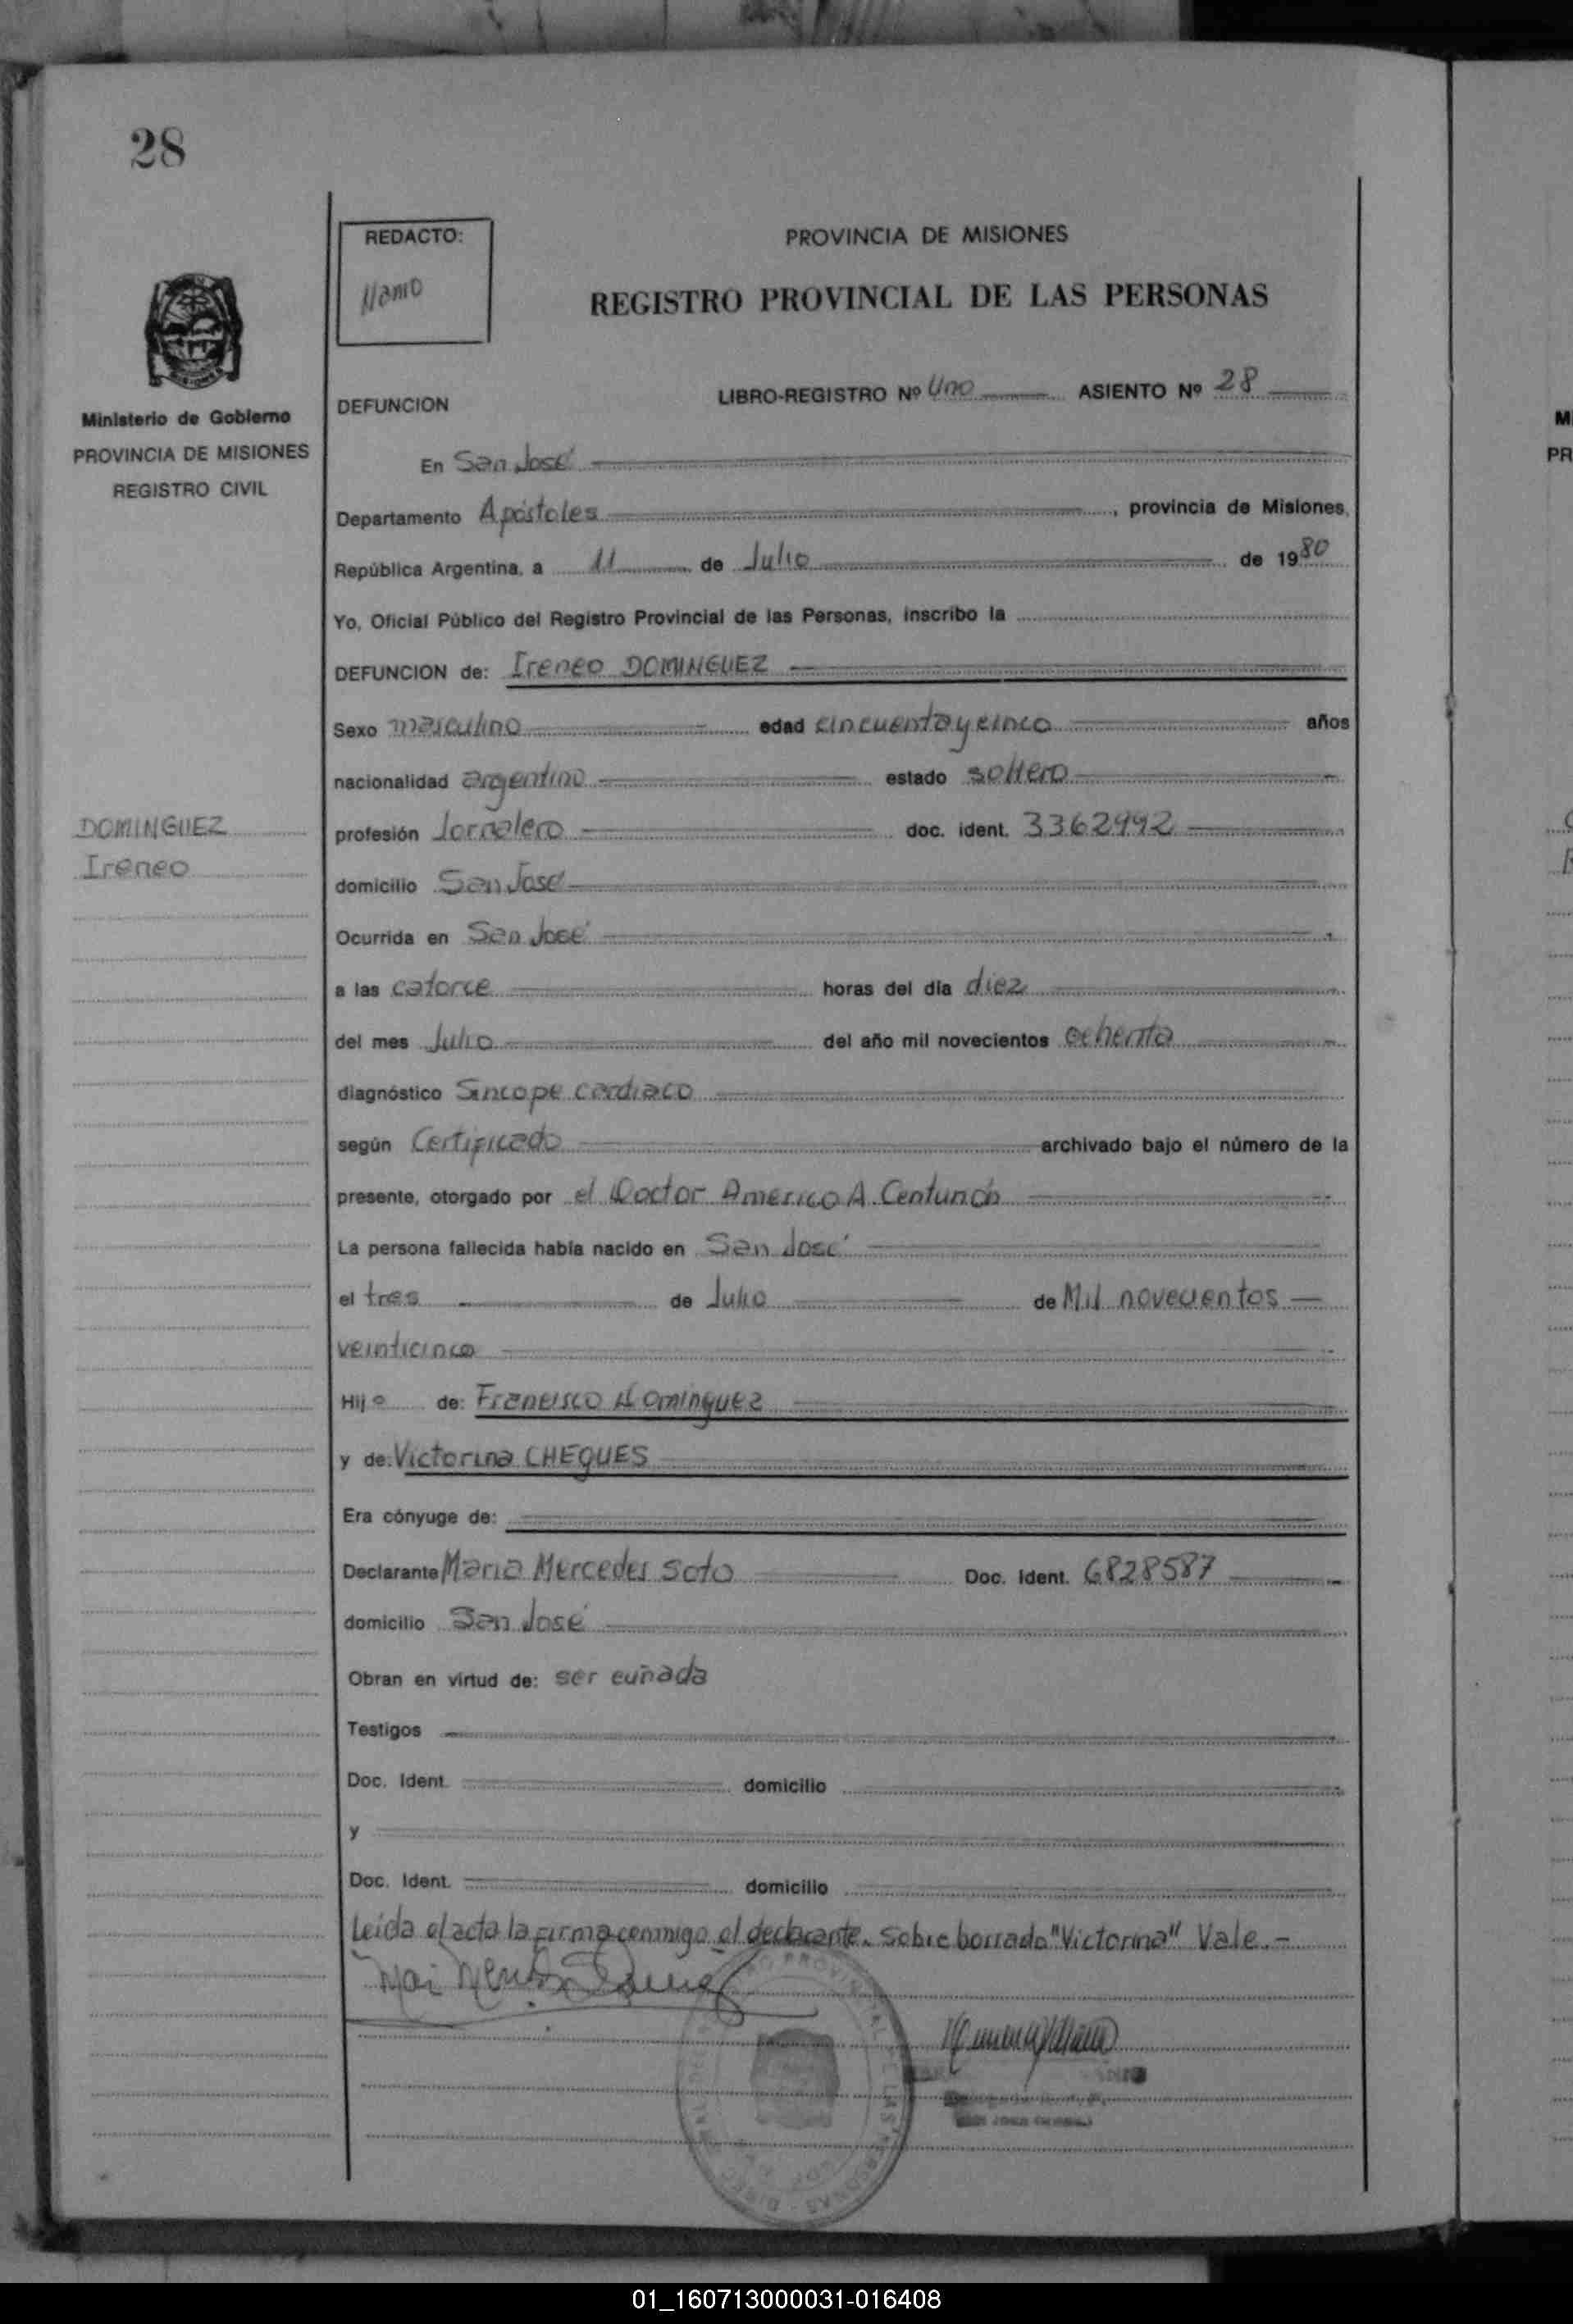 28
REDACTO:
PROVINCIA DE MISIONES
REGISTRO PROVINCIAL DE LAS PERSONAS
Ministerio de Gobierno
PROVINCIA DE MISIONES
REGISTRO CIVIL
DEFUNCION LIBRO-REGISTRO Nº Uno ASIENTO Nº 28
En San José
Departamento Apóstoles, provincia de Misiones,
República Argentina, a 11 de Julio de 1980
Yo, Oficial Público del Registro Provincial de las Personas, inscribo la
DEFUNCION de: Ireneo DOMINGUEZ
Sexo masculino edad cincuenta y cinco años
nacionalidad argentino estado soltero
DOMINGUEZ
Ireneo
profesión Jornalero doc. ident. 3362992
domicilio San José
Ocurrida en San José
a las catorce horas del día diez
del mes Julio del año mil novecientos ochenta
diagnóstico Sincope cardiaco
según Certificado archivado bajo el número de la
presente, otorgado por el Doctor Americo A.
La persona fallecida había nacido en San José
el tres de Julio de Mil novecientos
veinticinco
Hijo de: Francisco Dominguez
y de: Victorina CHEQUES
Era cónyuge de:
Declarante Maria Mercedes Soto Doc. Ident. 6828587
domicilio San José
Obran en virtud de: ser cuñada
Testigos
Doc. Ident. domicilio
y
Doc. Ident. domicilio
Leída el acta la firma conmigo el declarante. Sobre borrado "Victorina" Vale.-
01_160713000031-016408